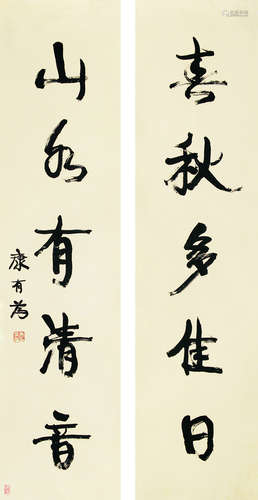 春秋多佳日
山水有清音
康有為